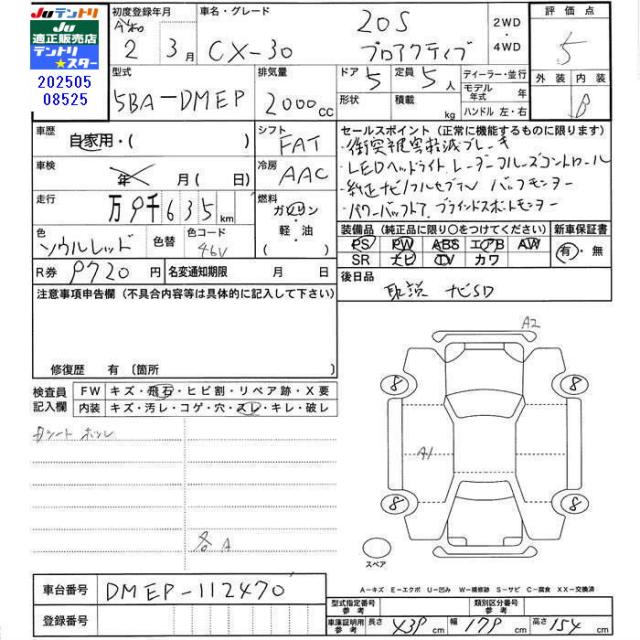 Juテントリ
Ju
適正販売店
テントリ
スター
202505
08525
初度登録年月
令和
2 3月
車名・グレード
CX-30
20S
プロアクティブ
2WD
4WD
評価点
5
外装 内装
B
型式
5BA-DMEP
排気量
2000cc
ドア 5
定員 5人
形状
積載 kg
ディーラー・並行
モデル年式 年
ハンドル 左・右
車歴
自家用・( )
シフト
FAT
車検
年 月 ( 日)
冷房
AAC
走行
万9千635km
燃料
ガソリン
・
軽・油
( )
色
ソウルレッド
色替
色コード
46V
R券 9720円
名変通知期限 月 日
セールスポイント (正常に機能するものに限ります)
・衝突被害軽減ブレーキ
・LEDヘッドライト レーダークルーズコントロール
・純正ナビ/フルセグTV バックモニター
・パワーバックドア ブラインドスポットモニター
装備品 (純正品に限り○をつけてください)
PS PW ABS エアB AW
SR ナビ TV カワ
新車保証書
有・無
後日品
取説 ナビSD
注意事項申告欄 (不具合内容等は具体的に記入して下さい)
修復歴 有 〔箇所 〕
検査員
記入欄
FW キズ・飛石・ヒビ割・リペア跡・X要
内装 キズ・汚レ・コゲ・穴・スレ・キレ・破レ
各A
A2
8
8
A1
8
8
スペア
A…キズ E…エクボ U…凹み W…補修跡 S…サビ C…腐食 XX…交換済
車台番号 DMEP-112470
登録番号
型式指定番号
参考
類別区分番号
参考
車庫証明用
参考
長さ 439cm
幅 179cm
高さ 154cm